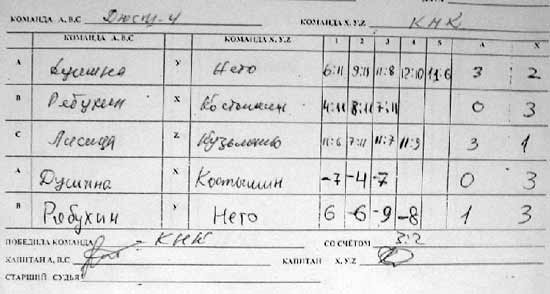 КОМАНДА А, В.С Дюсш-4 КОМАНДА Х. У.Z КНК
КОМАНДА А, В.С КОМАНДА Х. У.Z 1 2 3 4 5 А Х
А Душина У Нето 6:11 9:11 11:8 12:10 11:6 3 2
В Рябухин Х Костюшин 4:11 8:11 7:11 0 3
С Ласица Z 11:6 7:11 11:7 11:9 3 1
А Душина Х -7 -4 -7 0 3
В Рябухин У Него 6 -6 -9 -8 1 3
ПОБЕДИЛА КОМАНДА - КНК СО СЧЁТОМ 3:2
КАПИТАН А, В.С КАПИТАН Х. У.Z
СТАРШИЙ СУДЬЯ